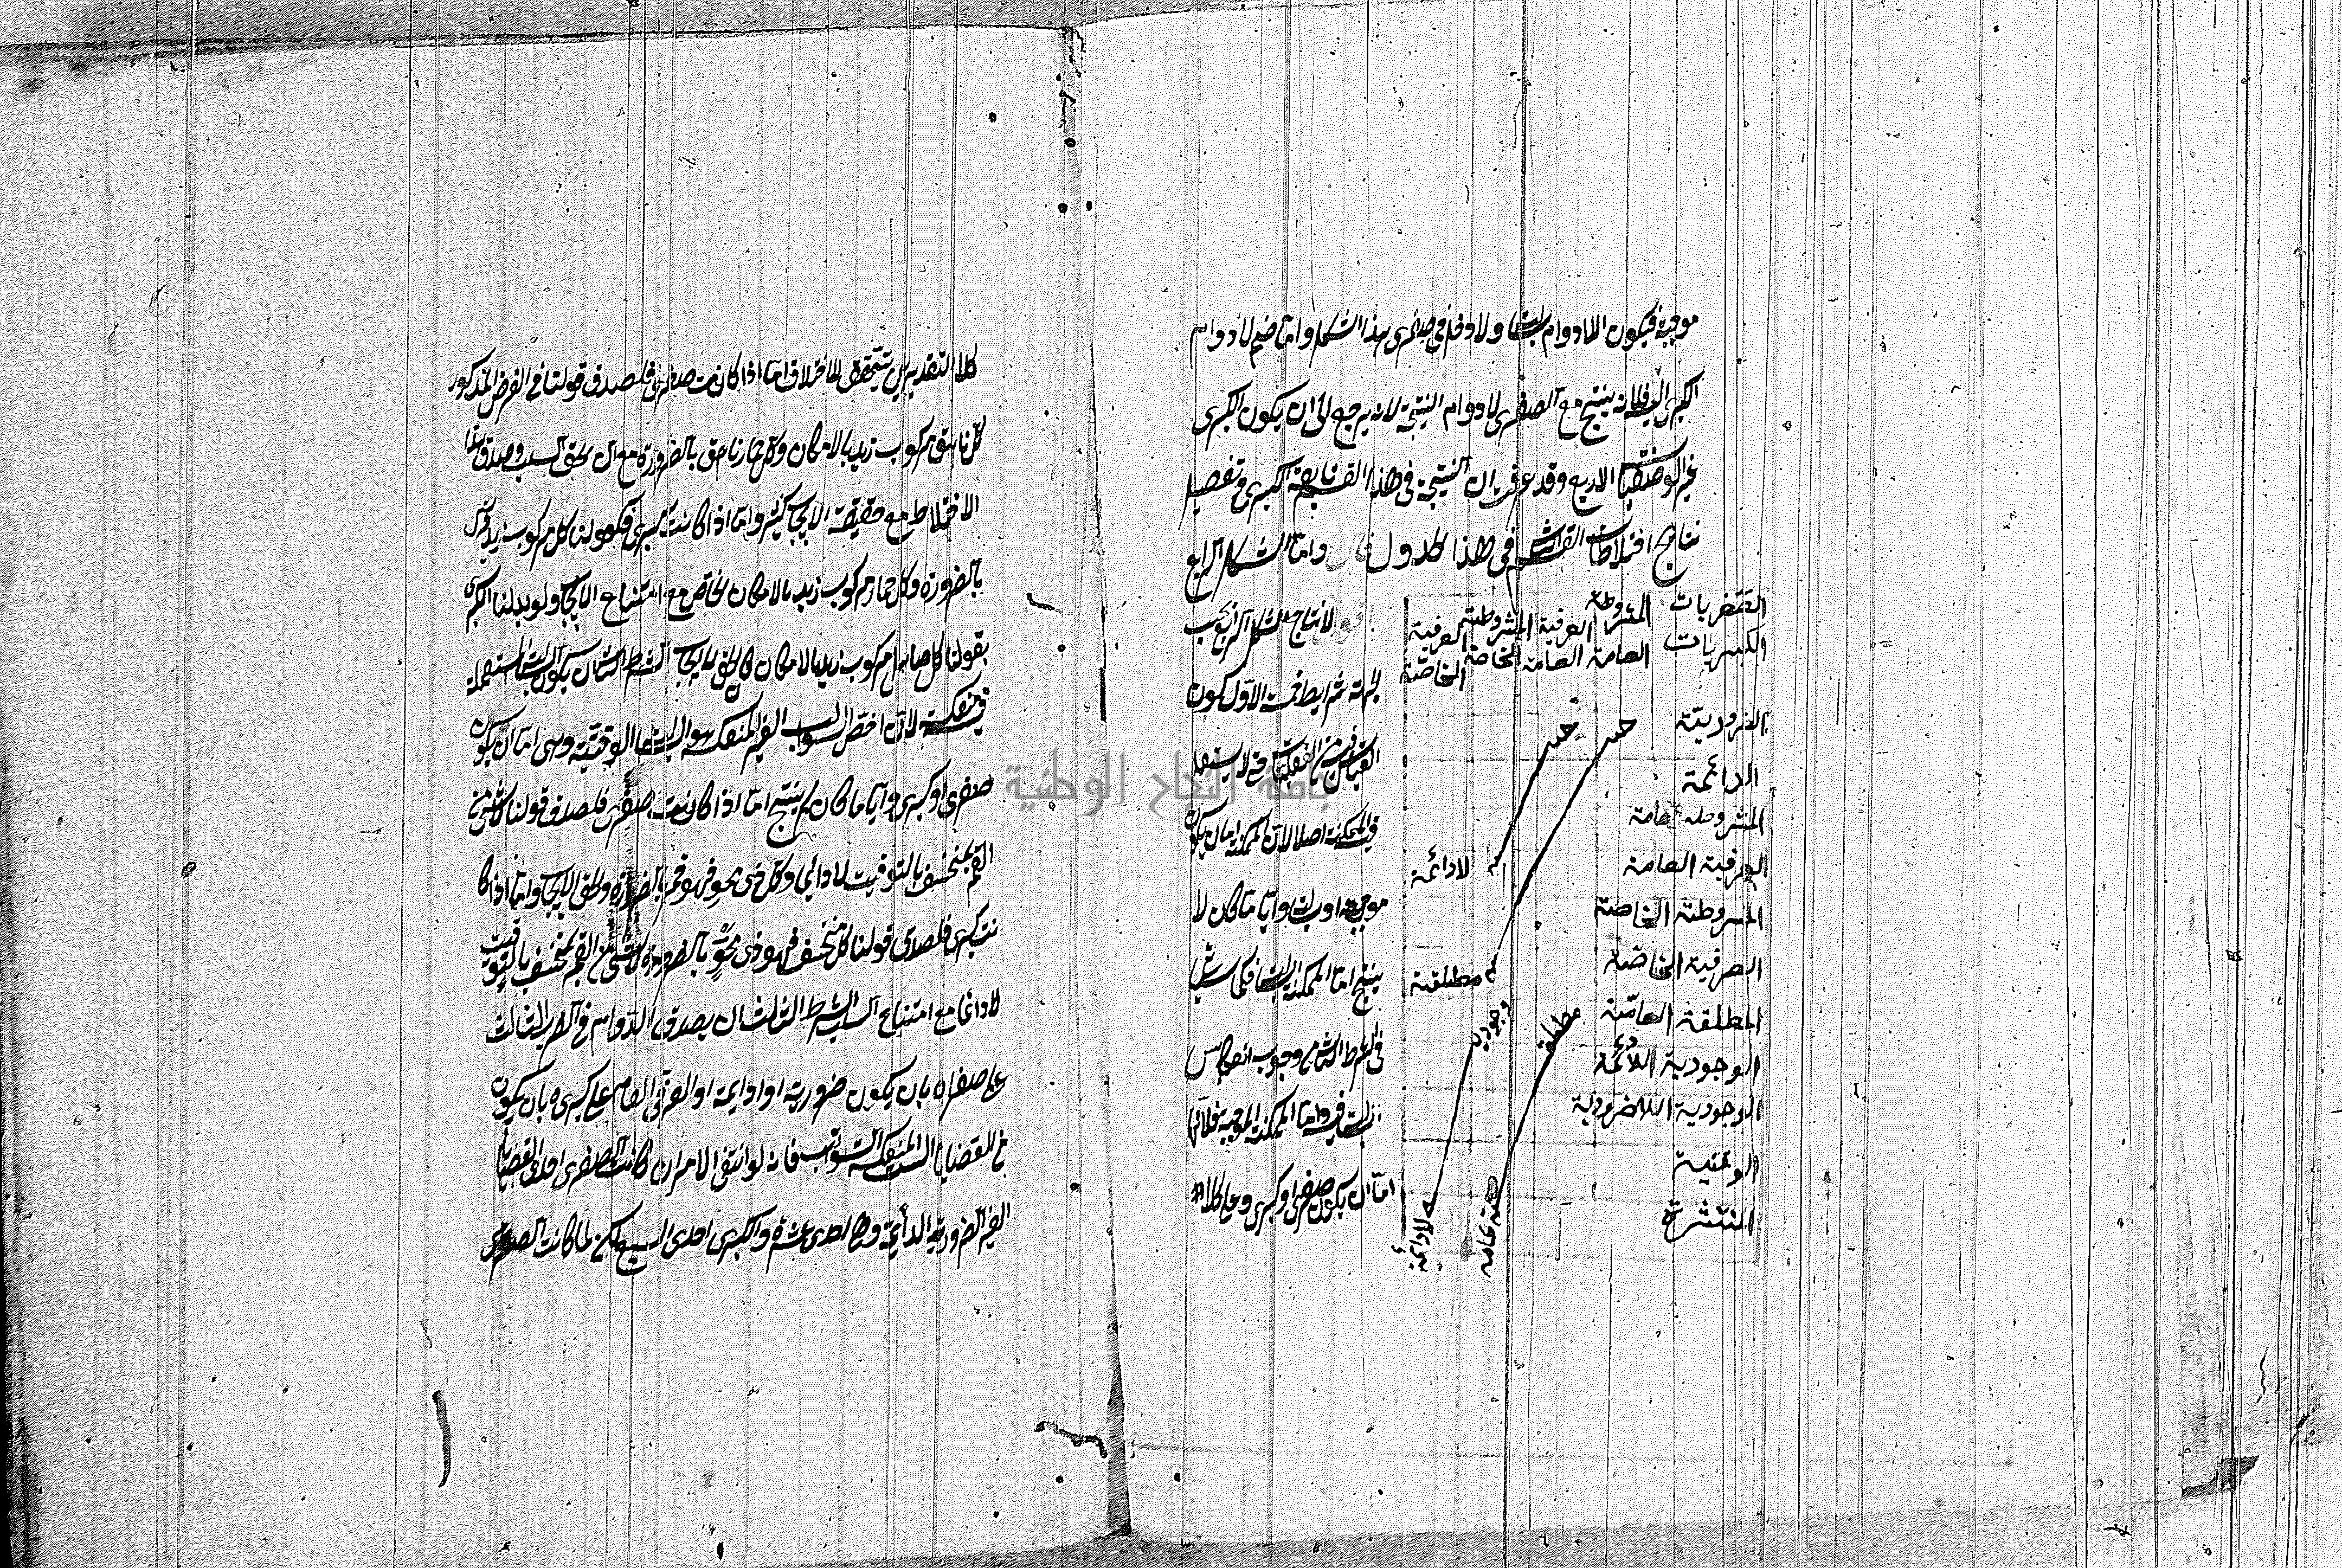 موجبة فيكون اللادوام سالبة ولا دخل في صغرى هذا الشكل واما ضم لادوام
الكبرى اليه فلانه ينتج مع الصغرى لادوام النتيجة لانه يرجع الى ان يكون الكبرى
غير الوصفيات الاربع وقد عرفت ان النتيجة في هذا القسم تابعة الكبرى وتفصيل
نتايج اختلاطات القسم في هذا الجدول قال واما الشكل الرابع
الصغريات المشروطة العرفية المشروطة العرفية
الكبريات العامة العامة الخاصة الخاصة
الضرورية
الدائمة
المشروطة العامة
العرفية العامة
المشروطة الخاصة
العرفية الخاصة
المطلقة العامة
الوجودية اللادائمة
الوجودية اللاضرورية
الوقتية
المنتشرة
لادائمة
مطلقة
وجودية
مطلقة
لادائمة
عامة
لانتاج الشكل الرابع بحسب
الجهة شرايط خمسة الاول كون
القياس فيه من الفعليات حتى لا يستعمل
فيه الممكنة اصلا لان الممكنة اما ان يكون
موجبة او سالبة وايا ما كان لا
ينتج اما الممكنة السالبة فلما سيأتي
في الشرط الثاني من وجوب انعكاس
السالبة فيه واما الممكنة الموجبة فلانها
اما ان يكون صغرى او كبرى وعلى كلا
كلا التقديرين يتحقق الاختلاف اما اذا كانت صغرى فلصدق قولنا في الفرض المذكور
كل ناهق مركوب زيد بالامكان وكل حمار ناهق بالضرورة مع ان الحق السلب وصدق هذا
الاختلاط مع حقيقة الايجاب كثير واما اذا كانت كبرى فكقولنا كل مركوب زيد فرس
بالضرورة وكل حمار مركوب زيد بالامكان الخاص مع امتناع الايجاب ولو بدلنا الكبرى
بقولنا كل صاهل مركوب زيد بالامكان كان الحق الايجاب الشرط الثاني ان يكون السالبة المستعملة
فيه منعكسة لان اخص السوالب الغير المنعكسة هو السالبة الوقتية وهي اما ان يكون
صغرى او كبرى وايا ما كان لم ينتج اما اذا كانت صغرى فلصدق قولنا لا شيء من
القمر بمنخسف بالتوقيت لا دائما وكل ذي محو فهو قمر بالضرورة والحق الايجاب واما اذا كا
نت كبرى فلصدق قولنا كل منخسف فهو ذو محو بالضرورة ولا شيء من القمر بمنخسف بالتوقيت
لا دائما مع امتناع السلب الشرط الثالث ان يصدق الدوام في الضرب الثالث
على صغراه بان يكون ضرورية او دايمة او العرفي العام على كبراه بان يكون
من القضايا الست المنعكسة السوالب فانه لو انتفى الامران كانت الصغرى احدى القضايا
الغير الضرورية والدائمة وهي احدى عشرة والكبرى احدى السبع لكن لما كانت الصغرى
جامعة النجاح الوطنية